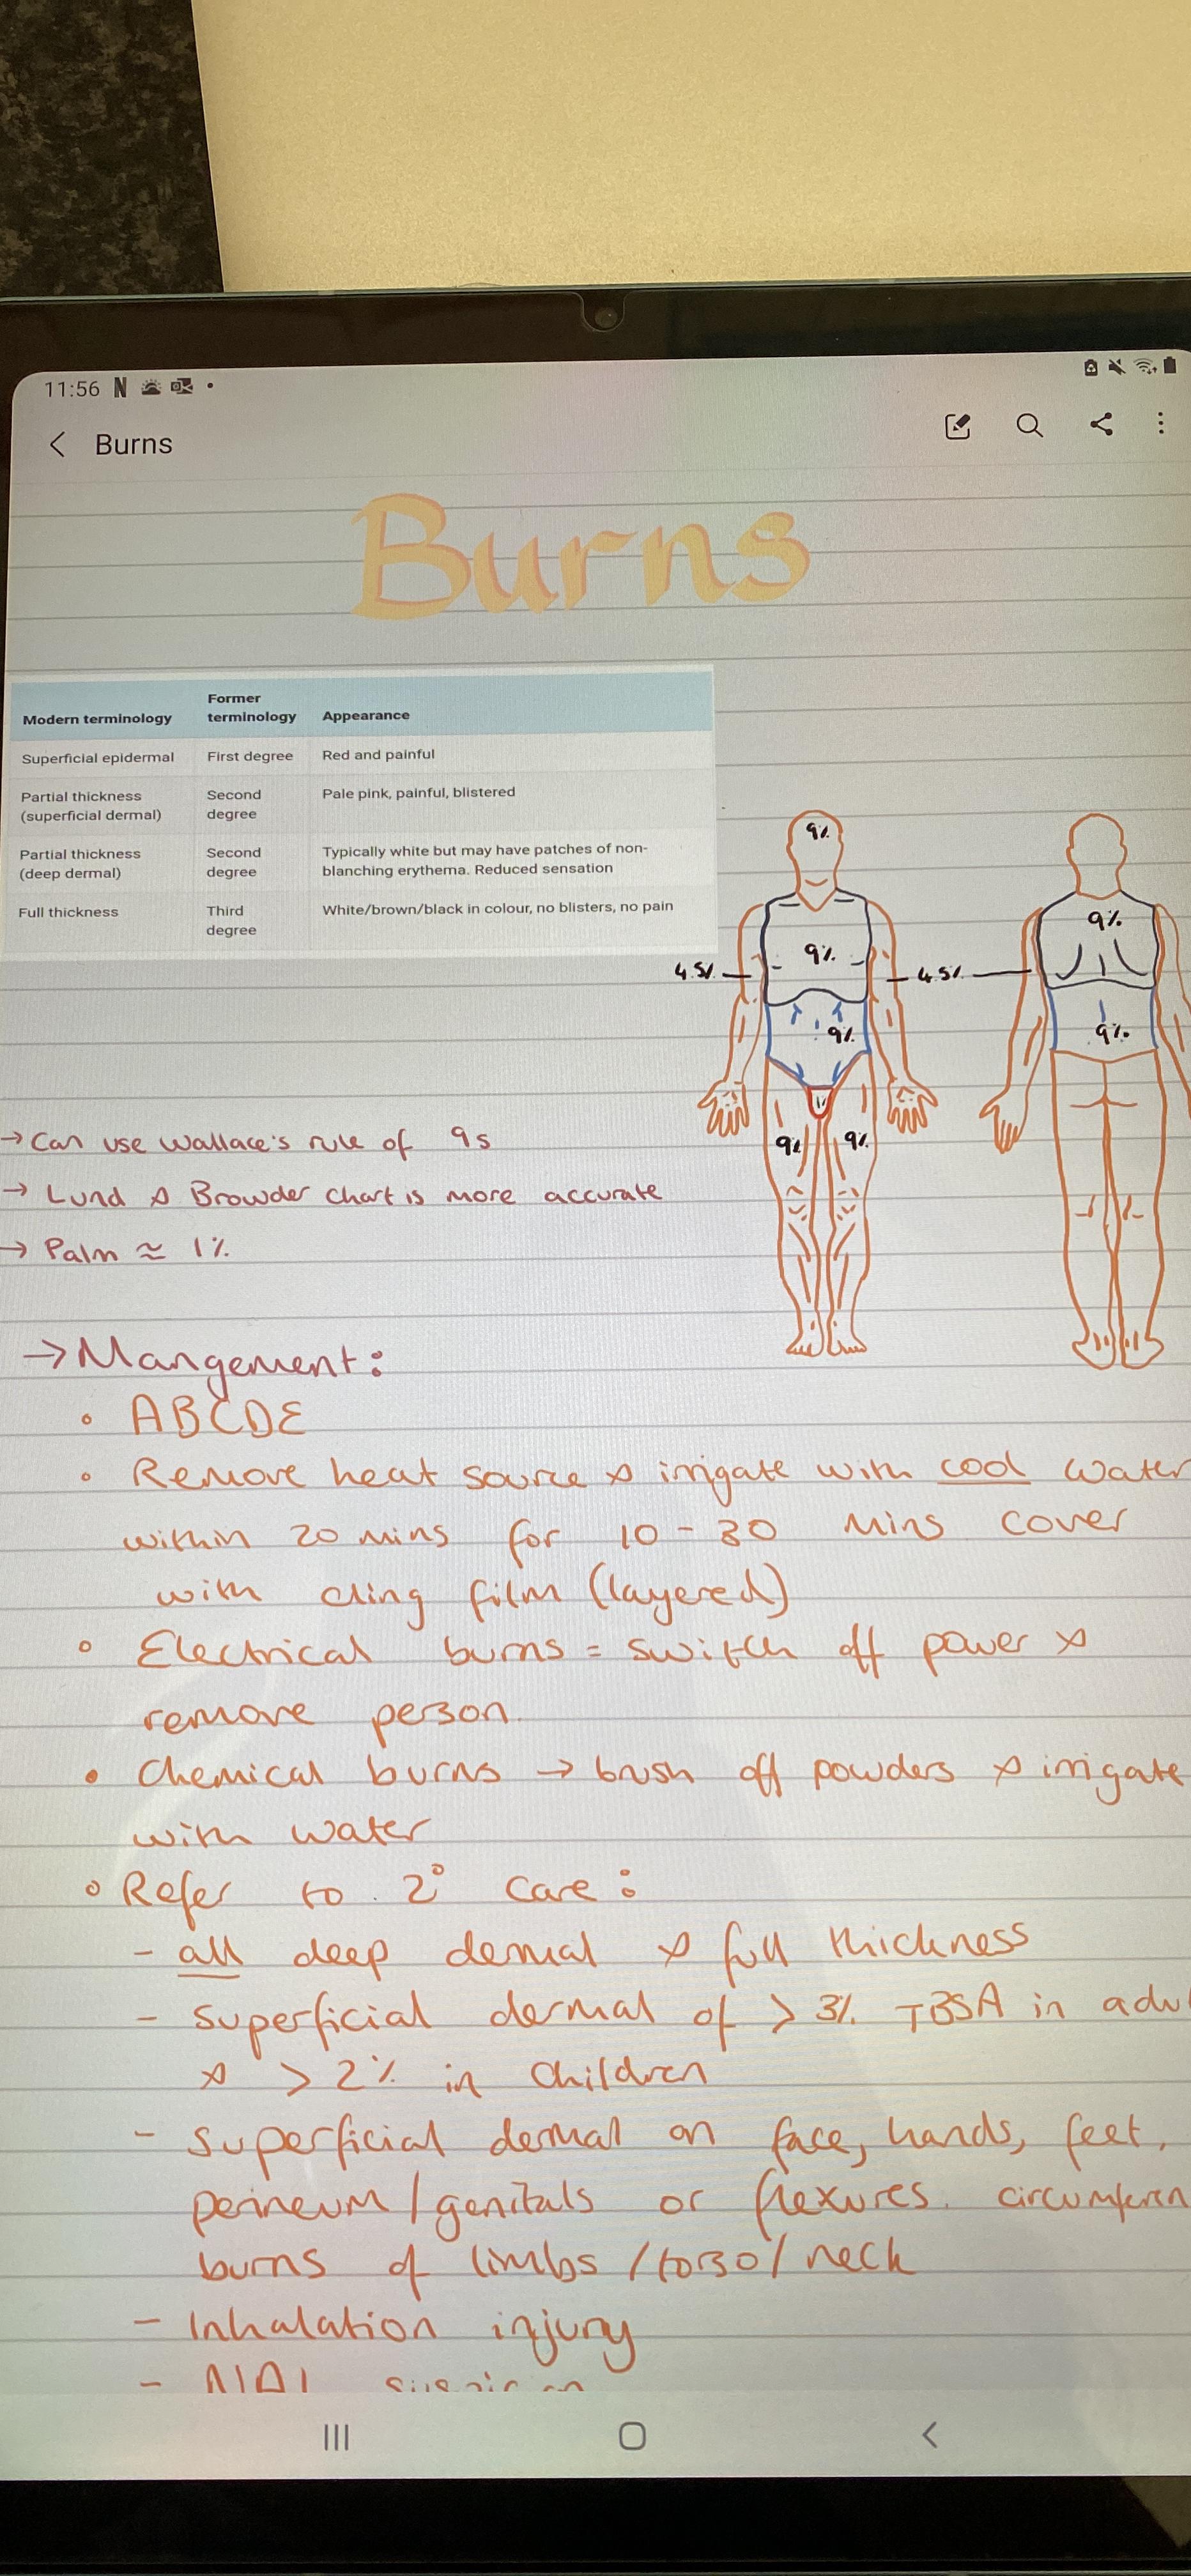 11:56
Burns
Burns
Modern terminology Former terminology Appearance
Superficial epidermal First degree Red and painful
Partial thickness (superficial dermal) Second degree Pale pink, painful, blistered
Partial thickness (deep dermal) Second degree Typically white but may have patches of non-blanching erythema. Reduced sensation
Full thickness Third degree White/brown/black in colour, no blisters, no pain
9%
9%
9%
4.5%
4.5%
9%
9%
1%
9%
9%
→ Can use Wallace's rule of 9s
→ Lund & Browder chart is more accurate
→ Palm ≈ 1%
→ Mangement:
• ABCDE
• Remove heat source & irrigate with cool water
within 20 mins for 10-30 mins cover
with cling film (layered)
• Electrical burns = switch off power &
remove person.
• Chemical burns → brush off powders & irrigate
with water
• Refer to 2° care:
- all deep dermal & full thickness
- superficial dermal of > 3% TBSA in adul
& > 2% in children
- superficial dermal on face, hands, feet,
perineum/genitals or flexures. circumferen
burns of limbs/torso/neck
- Inhalation injury